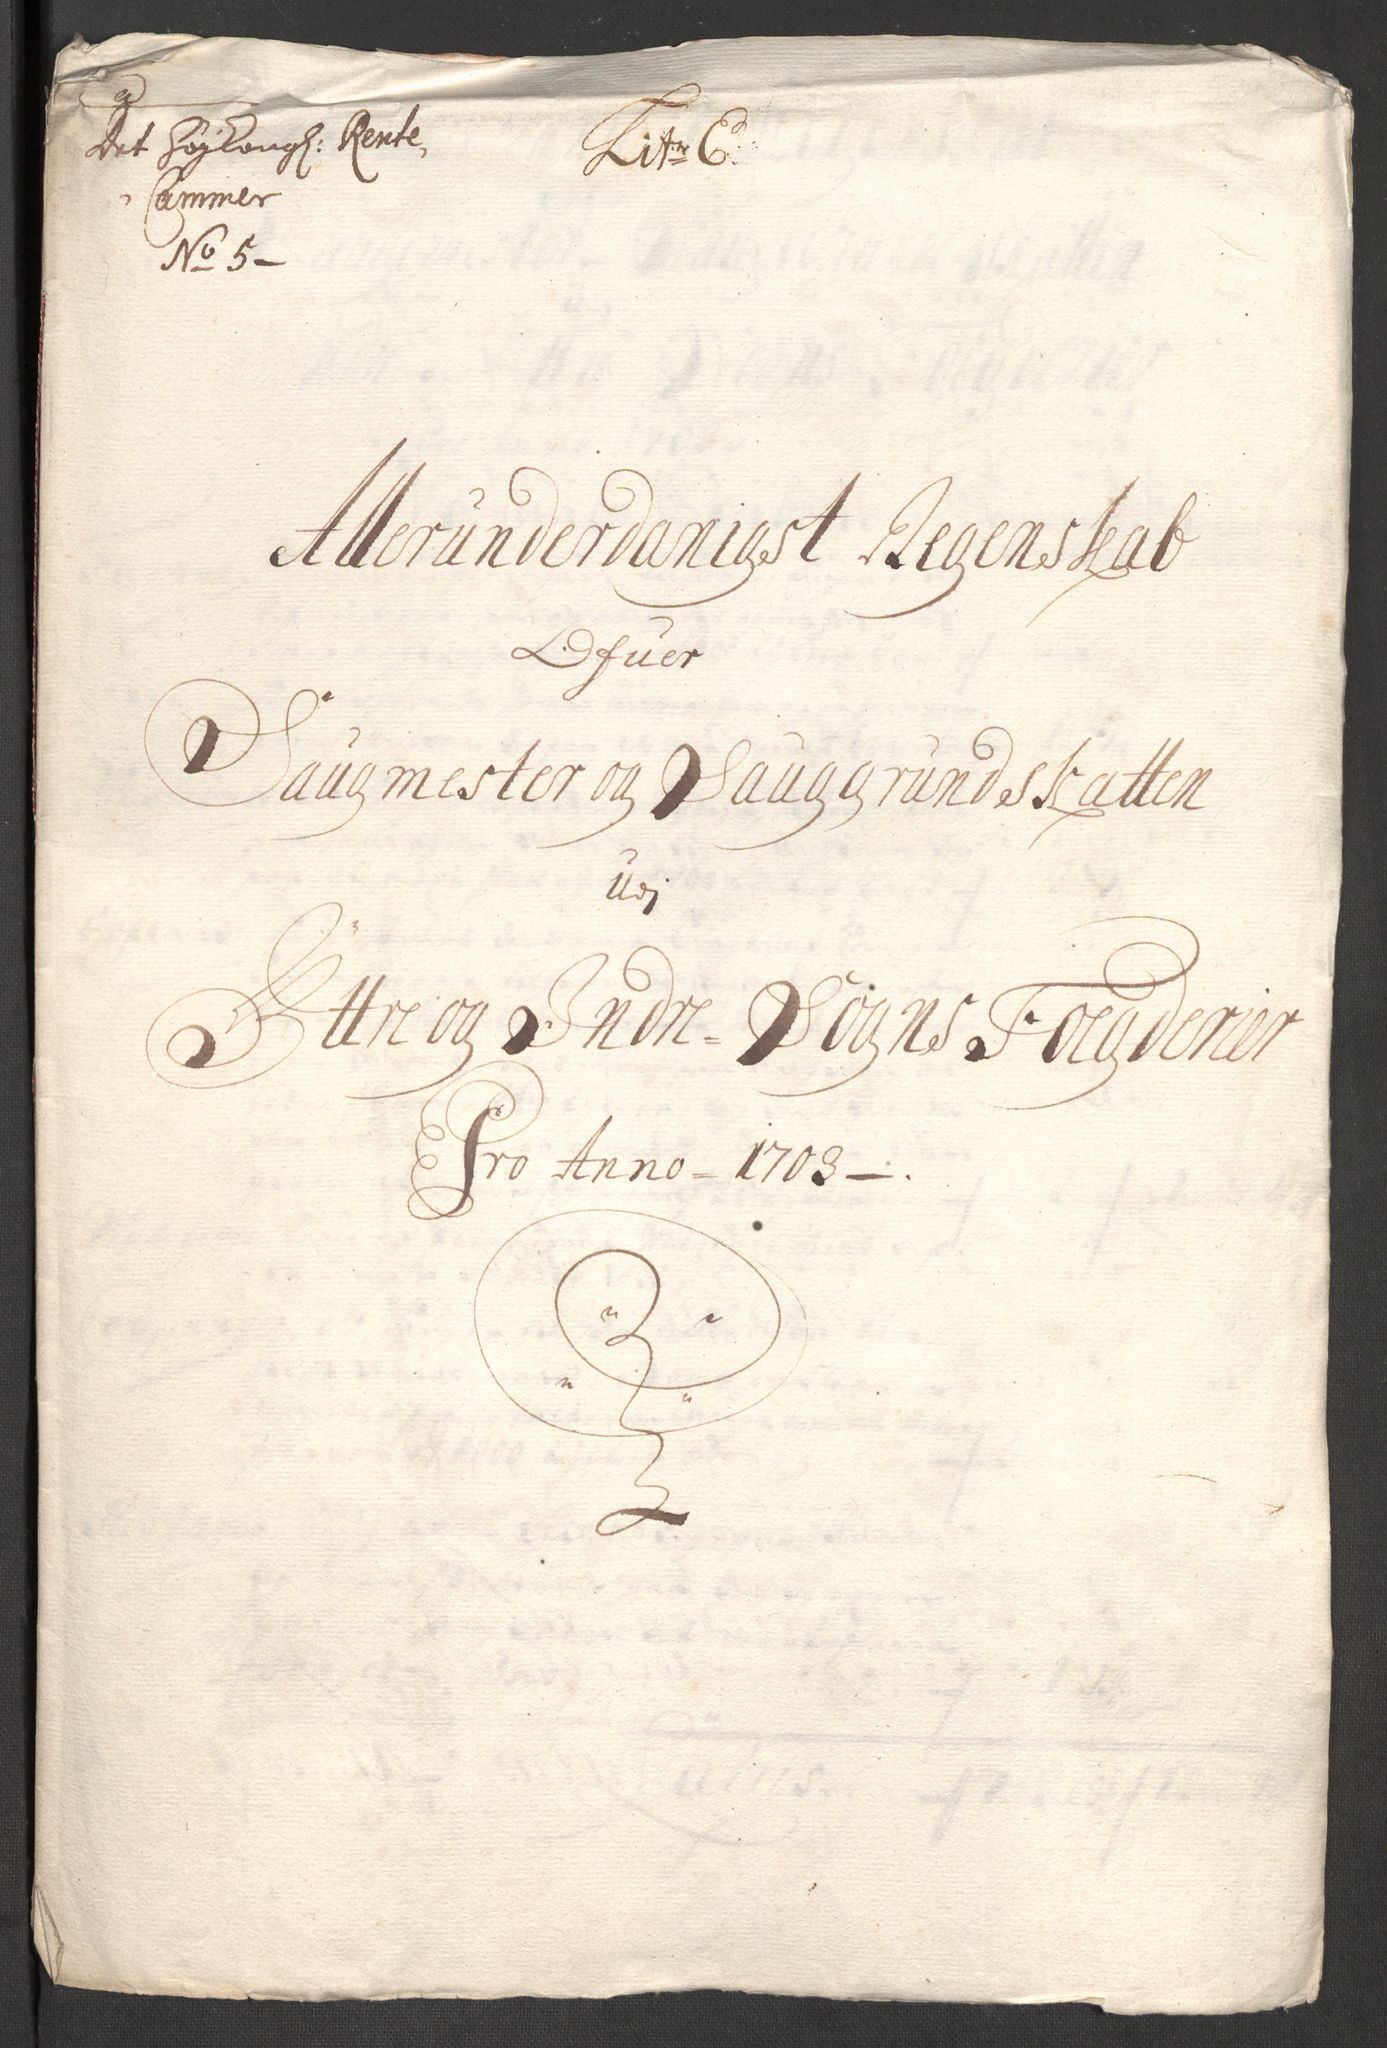 Det Høÿkongl: Rente,
Cammer
No 5-
Litr C:
Alleründerdanigst Regenskab
Ofuer
Saugmester og Sauggründskatten
Udj
Ÿttre og Indre- Sogns Foegderier
Pro Anno- 1703-.